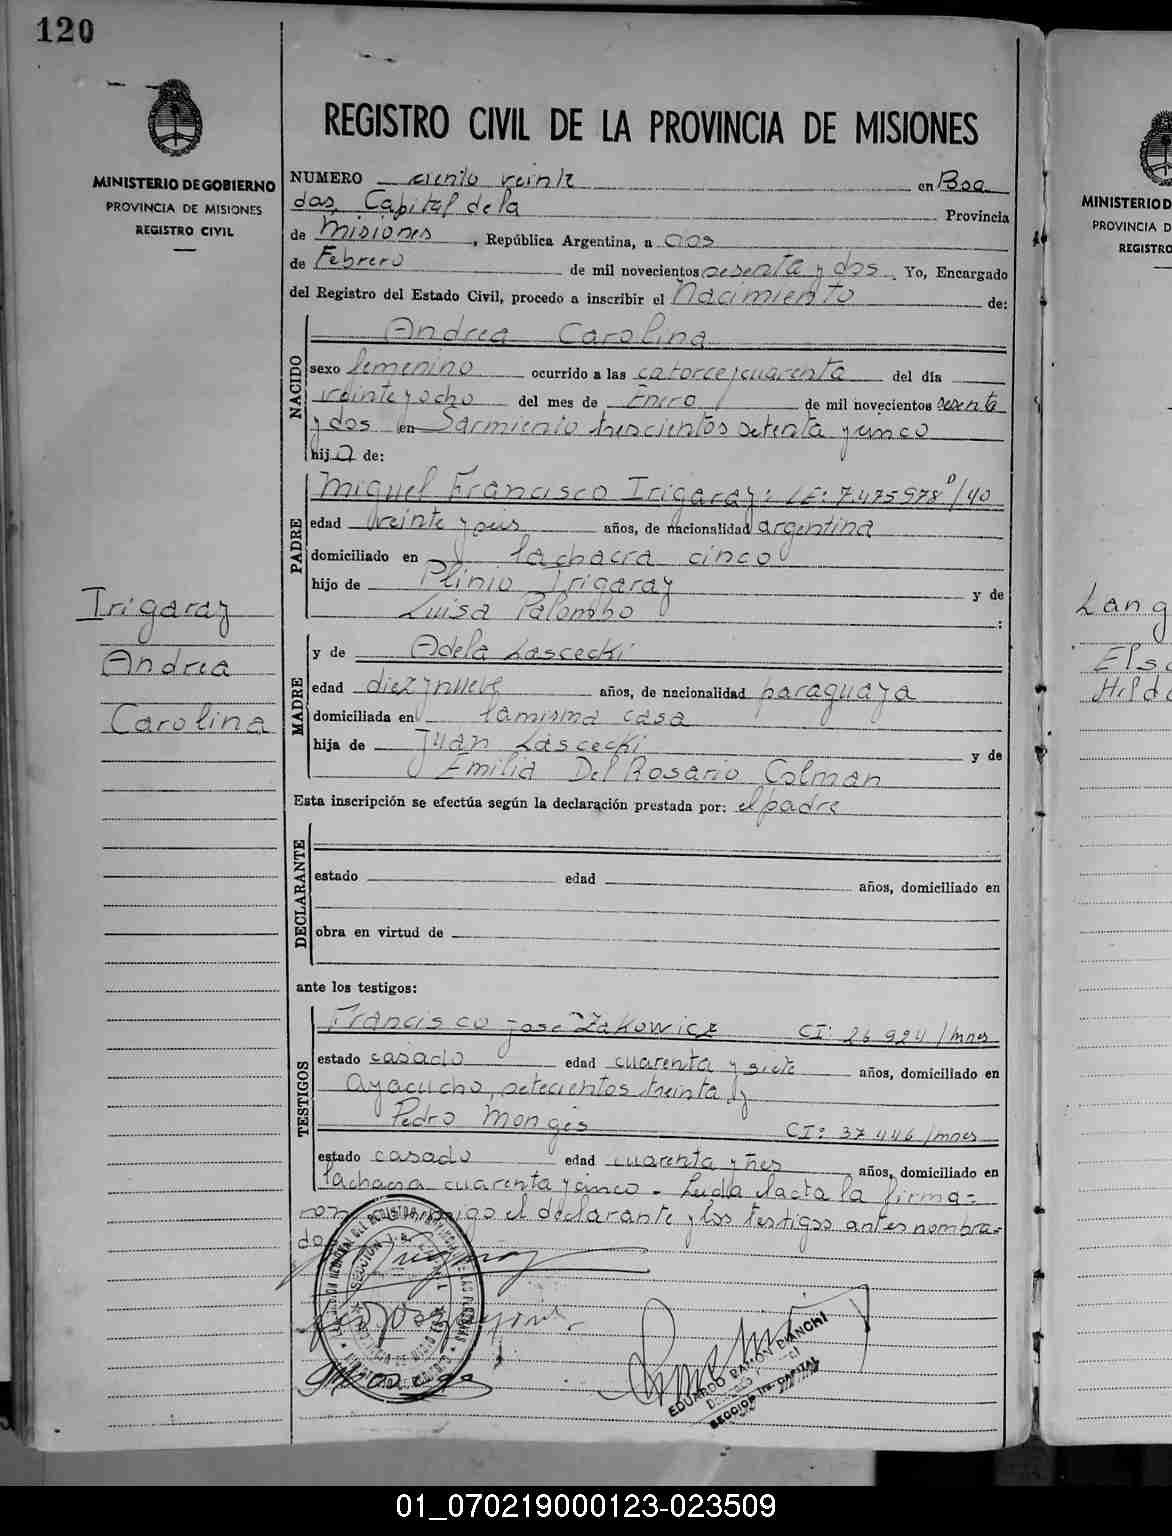 120
MINISTERIO DE GOBIERNO
PROVINCIA DE MISIONES
REGISTRO CIVIL
Irigaray
Andrea
Carolina
REGISTRO CIVIL DE LA PROVINCIA DE MISIONES
NUMERO ciento veinte en Posa
das, Capital de la Provincia
de Misiones, República Argentina, a dos
de Febrero de mil novecientos sesenta y dos. Yo, Encargado
del Registro del Estado Civil, procedo a inscribir el Nacimiento de:
NACIDO
Andrea Carolina
sexo femenino ocurrido a las catorce y cuarenta del día
veinte y ocho del mes de Enero de mil novecientos sesenta
y dos en Sarmiento trescientos setenta y cinco
hija de:
PADRE
Miguel Francisco Irigaray: LE: 7.475978 D/40
edad veinte y seis años, de nacionalidad argentina
domiciliado en la chacra cinco
hijo de Plinio Irigaray y de
Luisa Palombo :
MADRE
y de Adela Lascecki
edad diez y nueve años, de nacionalidad paraguaya
domiciliada en la misma casa
hija de Juan Lascecki y de
Emilia Del Rosario Colman
Esta inscripción se efectúa según la declaración prestada por: el padre
DECLARANTE
estado edad años, domiciliado en
obra en virtud de
ante los testigos:
TESTIGOS
Francisco José Zakowicz CI: 26 924/mnes
estado casado edad cuarenta y siete años, domiciliado en
Ayacucho, setecientos treinta y
Pedro Monges CI: 37 446/mnes
estado casado edad cuarenta y tres años, domiciliado en
la chacra cuarenta y cinco. Leida el acta la firma=
ron conmigo el declarante y los testigos antes nombra=
dos
EDUARDO RAMON BIANCHI
SECCION 1ra. CAPITAL
MINISTERIO D
PROVINCIA D
REGISTRO
Lang
Elsa
Hilda
01_070219000123-023509